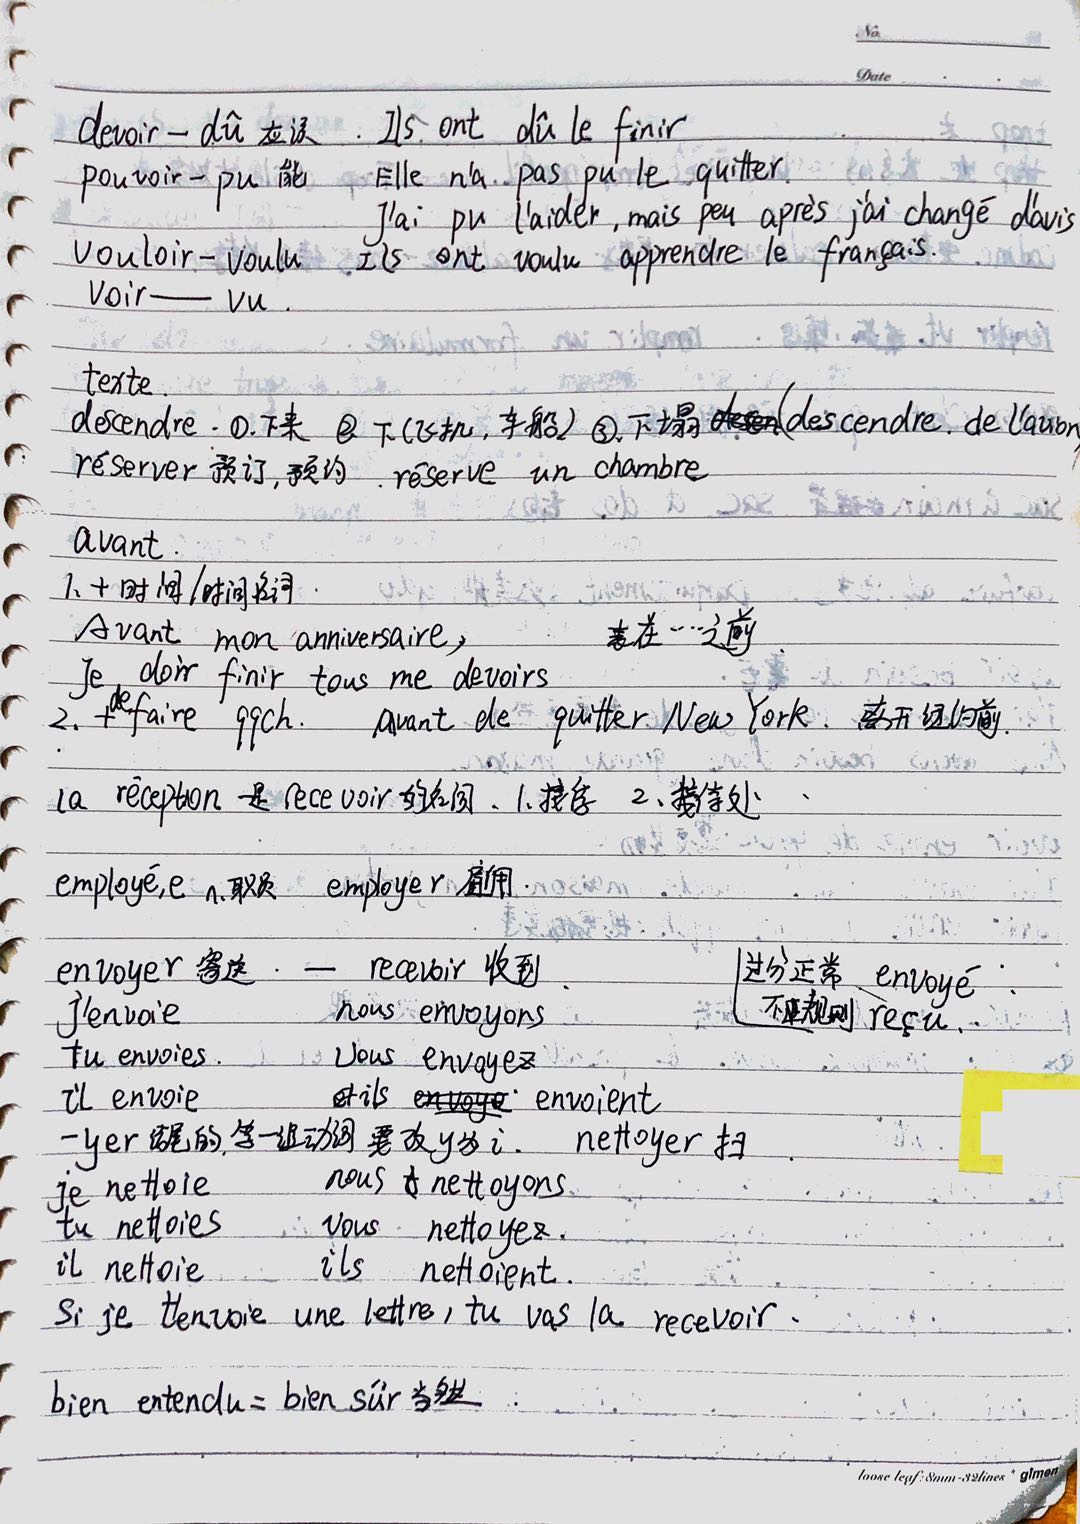 No.
Date
devoir — dû 应该 . Ils ont dû le finir
pouvoir — pu 能 Elle n'a pas pu le quitter.
J'ai pu l'aider, mais peu après j'ai changé d'avis
vouloir — voulu . Ils ont voulu apprendre le français.
voir — vu .
texte.
descendre . ①.下来 ② 下(飞机,车船) ③.下塌 (descendre de l'avion)
réserver 预订,预约 . réserve un chambre
avant.
1. + 时间/时间名词 .
Avant mon anniversaire, 表在……之前
Je doir finir tous me devoirs
2. + de faire qqch. avant de quitter New York . 离开纽约前.
la réception 是 recevoir 的名词 . 1. 接待 2. 接待处 .
employé,e n.职员 employer 雇用.
envoyer 寄送 . — recevoir 收到 . 过分正常 envoyé
j'envoie nous envoyons 不规则 reçu.
tu envoies. vous envoyez
il envoie ils envoient
-yer 结尾的,第一组动词 要改y为i. nettoyer 扫
je nettoie nous nettoyons
tu nettoies vous nettoyez.
il nettoie ils nettoient.
Si je t'envoie une lettre, tu vas la recevoir .
bien entendu = bien sûr 当然
loose leaf : 8mm-32lines * gimen